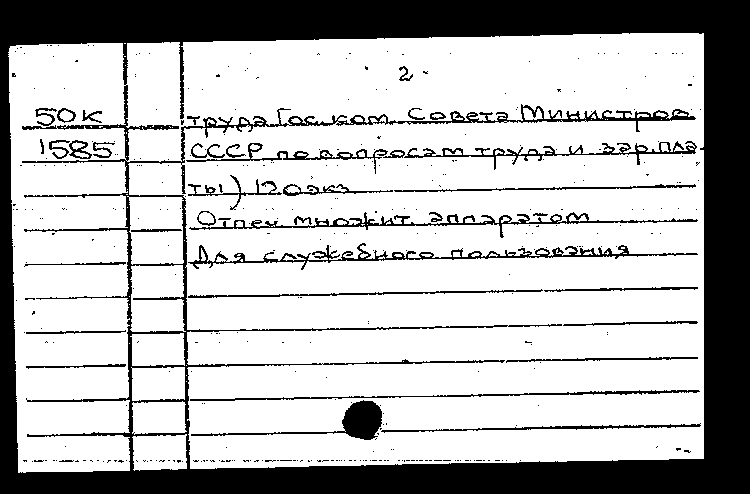 2
50К труда Гос. ком. Совета Министров
1585 СССР по вопросам труда и зар. пла-
ты) 120 экз.
Отпеч множит. аппаратом
Для служебного пользования